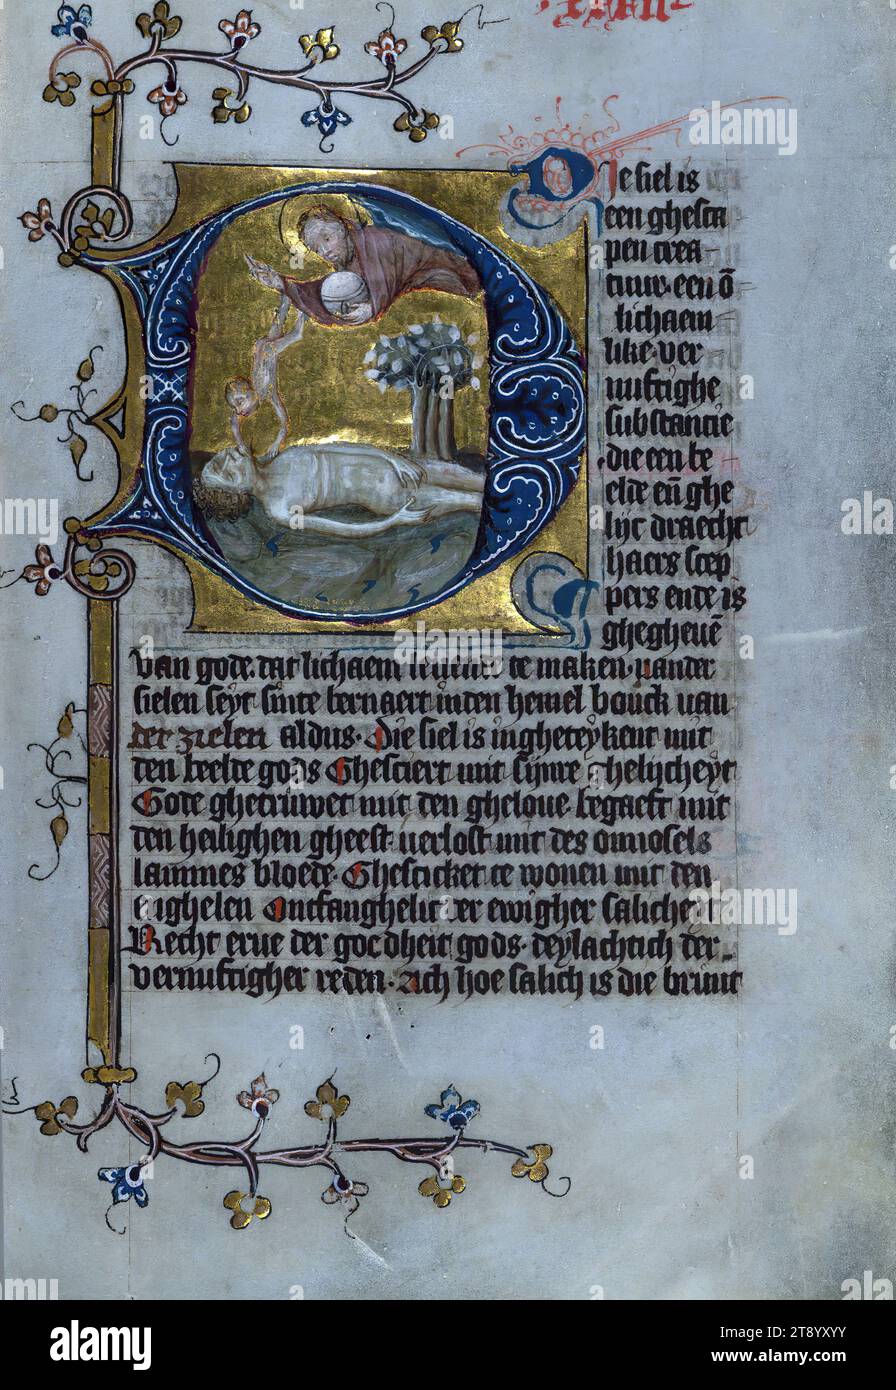 xxvii
Die siel is
een ghesca
pen crea
tuur. een ō
lichaem
like. ver
nuftighe
substancie
die een be
elde eñ ghe
lijc draecht
haers scep
pers ende is
ghegheuē
van gode. dat lichaem leuende te maken. vander
sielen seyt sinte bernaert inden hemel bouck van
der zielen aldus. Die siel is ingheteykent mit
ten beelde gods Ghesciert mit sijnre Ghelijcheyt
Gode ghetruwet mit den gheloue. begaeft mit
den heilighen gheest. verlost mit des onnosels
lammes bloede. Ghescicket te wonen mit den
enghelen Ontfanghelic der ewigher salicheit
Recht erue der gocdheit gods. deylachtich der
vernuftigher reden. Ach hoe salich is die bruut
alamy
Image ID: 2T8YXYY
www.alamy.com